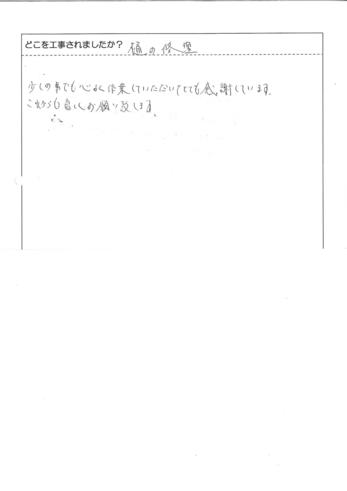 どこを工事されましたか? 樋の修理
少しの事でも心よく作業していただいてとても感謝しています。
これからも宜しくお願い致します